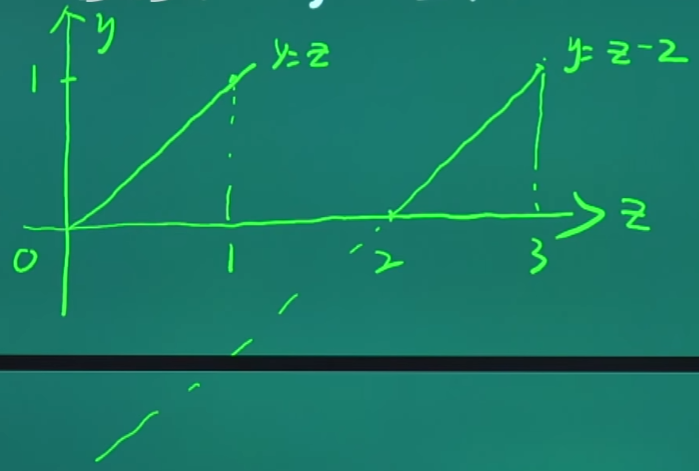 y
y=z
y=z-2
1
z
0
1
2
3